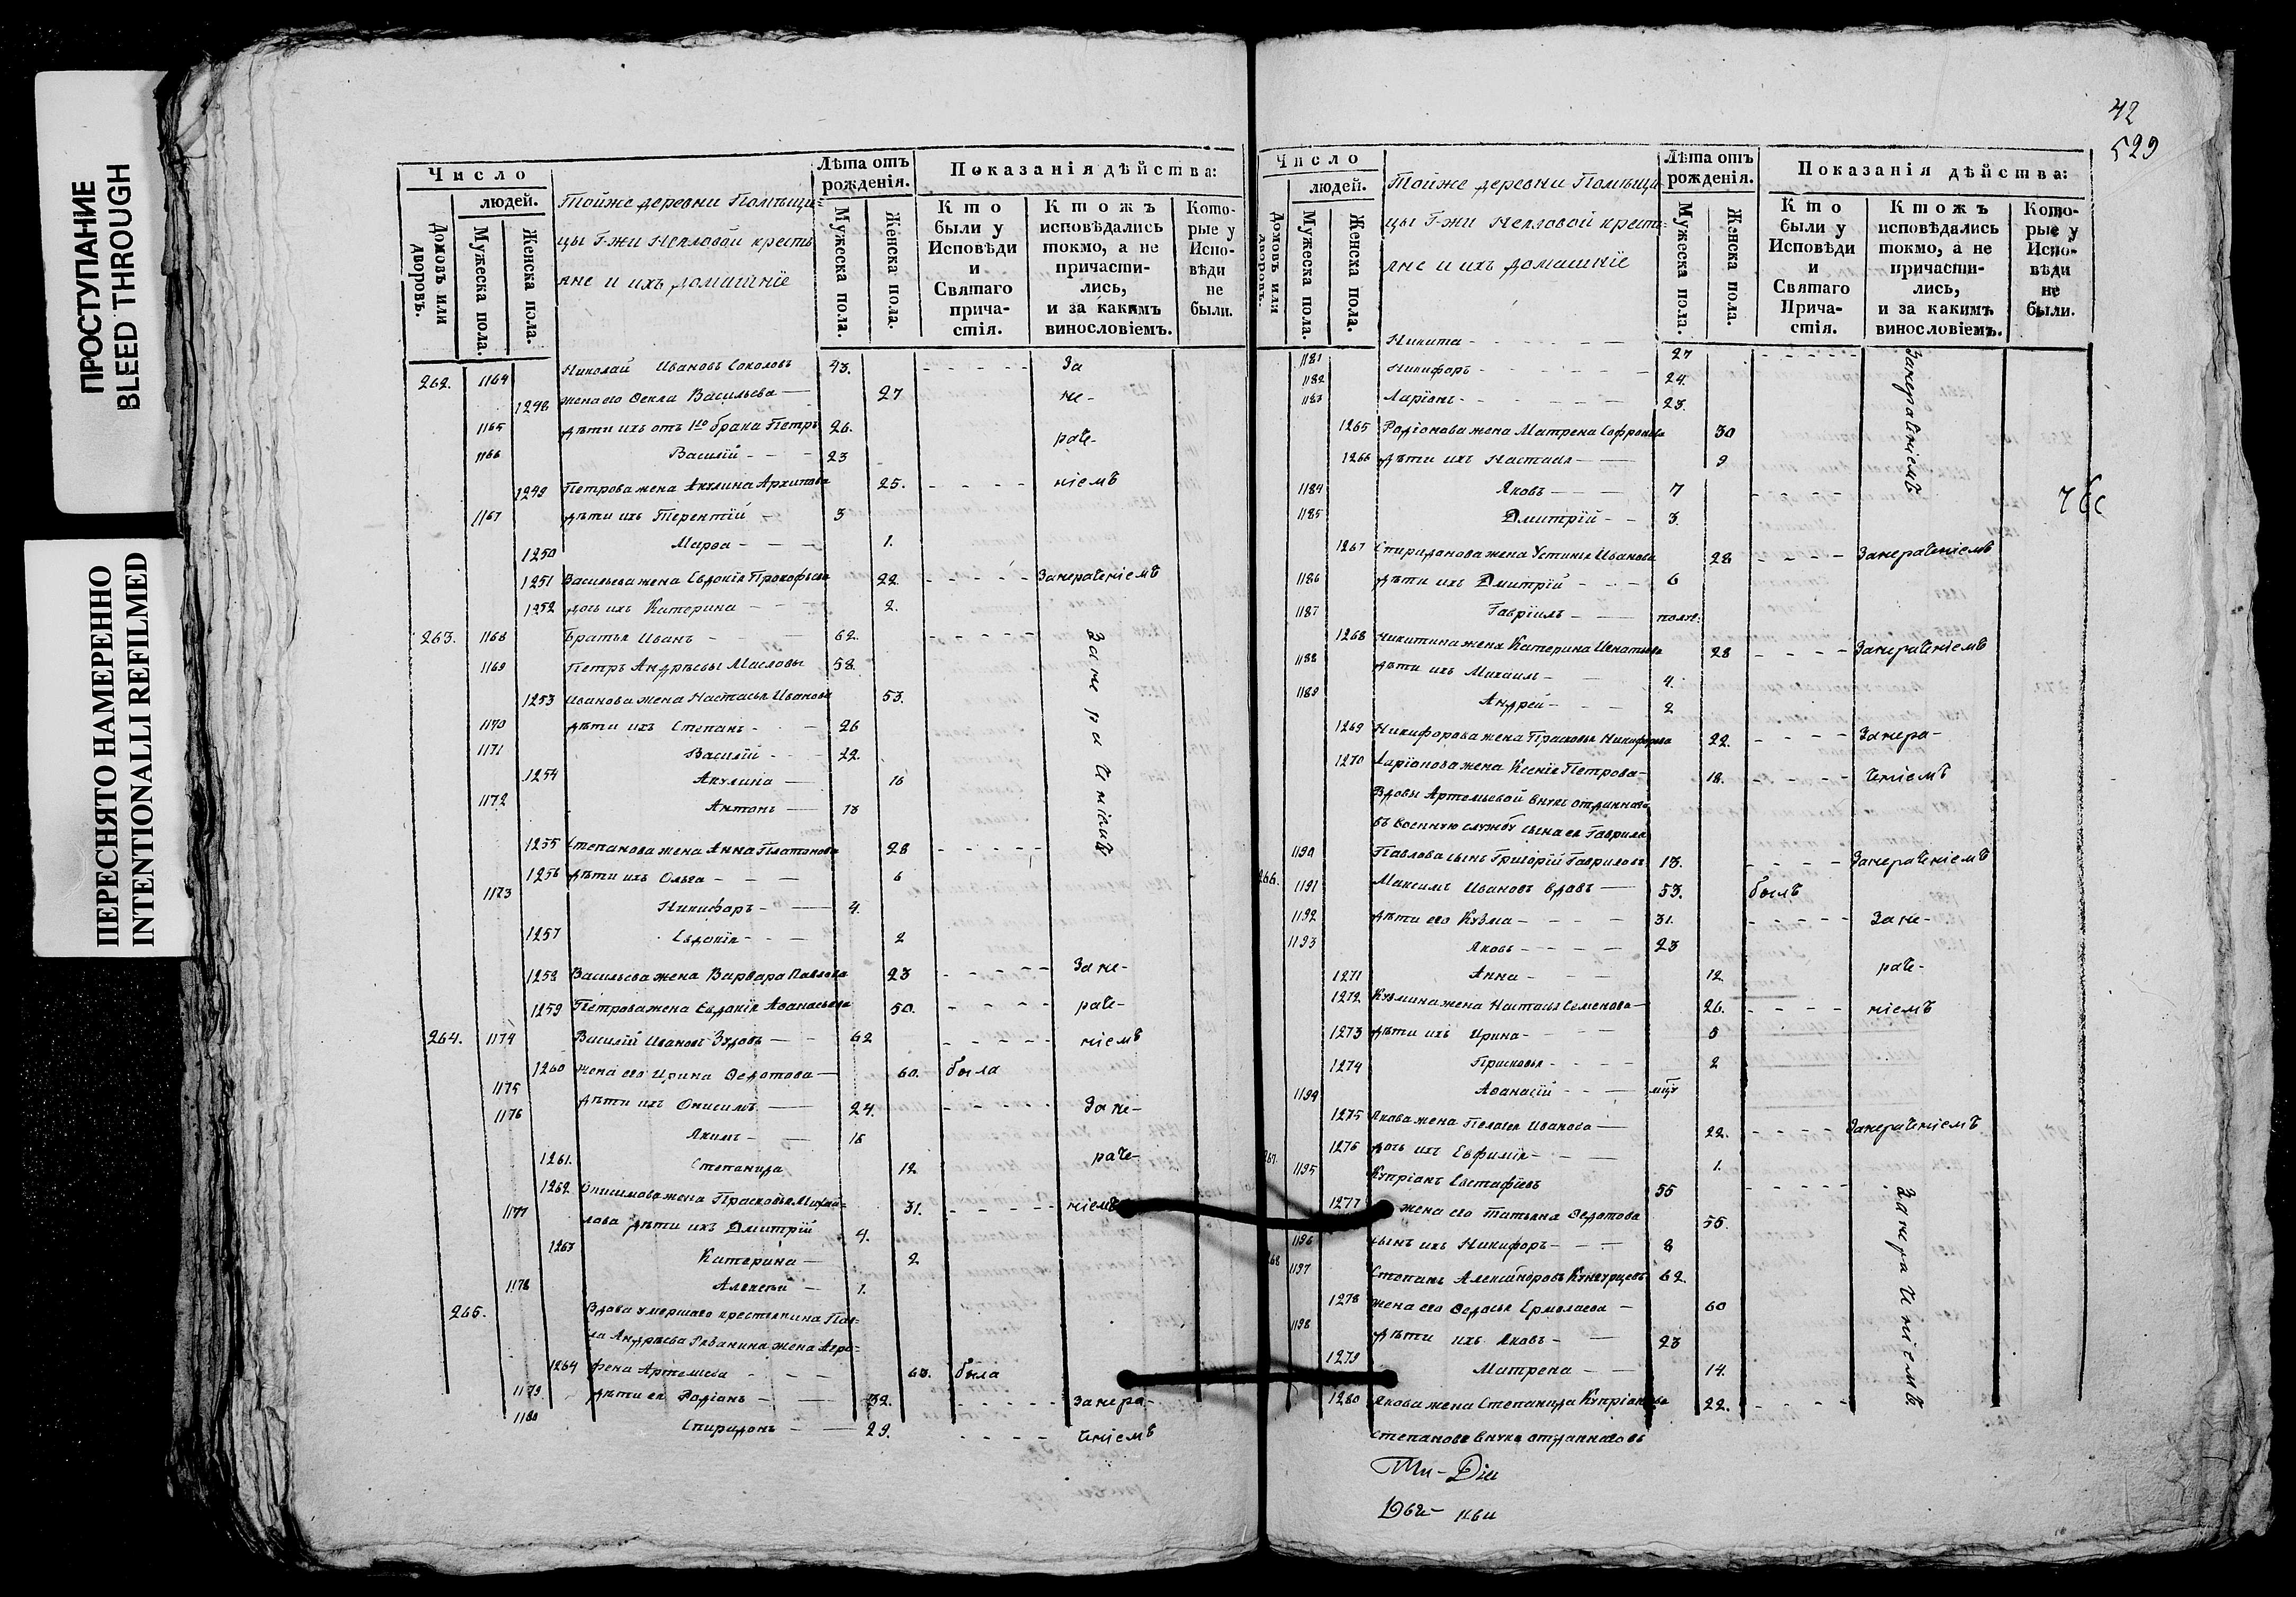 ПРОСТУПАНИЕ
BLEED THROUGH
ПЕРЕСНЯТО НАМЕРЕННО
INTENTIONALLI REFILMED
Число
людей.
Домовъ или дворовъ.
Мужеска пола.
Женска пола.
Тойже деревни Помѣщи=
цы Г-жи Нееловой кресть
яне и ихъ домашніе
Лѣта отъ рожденія.
Мужеска пола.
Женска пола.
Показанія дѣйства:
Кто были у Исповѣди и Святаго прича-стія.
Ктожъ исповѣдались токмо, а не причасти-лись, и за какимъ винословіемъ.
Кото-рые у Испо-вѣди не были.
262. 1164 Николай Ивановъ Соколовъ 43. - - - - - За
1248 жена его Фекла Васильева — 27 не-
1165 дѣти ихъ отъ 1го брака Петръ 26. раче-
1166 Василій - - - 23
1249 Петрова жена Акулина Архипова 25. - - - - ніемъ
1167 дѣти ихъ Терентій - 3
1250 Марфа - - - 1.
1251 Васильева жена Евдокія Прокофьева 22. - - - - - Занераченіемъ
1252 дочь ихъ Катерина - - - 2.
263. 1168 Братья Иванъ - - 62. - - - - - За не ра че ніемъ
1169 Петръ Андрѣевы Масловы 58.
1253 Иванова жена Настасья Иванова 53.
1170 дѣти ихъ Степанъ - - 26
1171 Василій - - - 22.
1254 Акулина — 16
1172 Антонъ — 13
1255 Степанова жена Анна Платонова 28 - - - - -
1256 дѣти ихъ Ольга - - - 6
1173 Никифоръ - — 4.
1257 Евдокія - - - 2
1258 Васильева жена Варвара Павлова 23 - - - - - Зане-
1259 Петрова жена Евдокія Афанасьева 50. - - - - раче-
264. 1174 Василій Ивановъ Зудовъ — - 62 - - - - - ніемъ
1260 жена его Ирина Федотова — 60. была
1175 дѣти ихъ Онисимъ — 24. - - - - - Зане-
1176 Якимъ - — 16
1261. Степанида 12. раче-
1262. Онисимова жена Прасковья Михай=
31. - - - - - ніемъ
1177 лова дѣти ихъ Дмитрій 4.
1263 Катерина — 2
1178 Алексѣй — 1.
265. Вдова умершаго крестьянина Пав=
ла Андрѣева жена Агра=
1264 фена Артемьева - - - - 63. была
1179. дѣти ея Родіонъ - — 32. - - - - - Занера-
1180 Спиридонъ - — 29. - - - - ченіемъ
42
529
Число
людей.
Домовъ или дворовъ.
Мужеска пола.
Женска пола.
Тойже деревни Помѣщи
цы Г-жи Нееловой кресть=
яне и ихъ домашніе
Лѣта отъ рожденія.
Мужеска пола.
Женска пола.
Показанія дѣйства:
Кто были у Исповѣди и Святаго Прича-стія.
Ктожъ исповѣдались токмо, а не причасти-лись, и за какимъ винословіемъ.
Кото-рые у Испо-вѣди не были.
1181 Никита - - - - 27 - - - - - Занераченіемъ
1182 Никифоръ - - - - 24.
1183 Ларіонъ - - - - 23.
1265 Родіонова жена Матрена Софронова 30
1266 дѣти ихъ Настасья - — 9
1184 Яковъ - - - 7 - - - -
1185 Дмитрій - - 3.
1267 Спиридонова жена Устинья Иванова 28 - - - - Занераченіемъ
1186 дѣти ихъ Дмитрій - - - 6
1187 Гавріилъ - — полг:
1268 Никитина жена Катерина Игнатьева 28 - - - - Занераченіемъ
1188 дѣти ихъ Михаилъ - - 4.
1189 Андрей - - - 2
1269 Никифорова жена Прасковья Никифорова 22. - - - - Занера-
1270 Ларіонова жена Ксенія Петрова - 18. - - - - - ченіемъ
Вдовы Артемьевой внукъ отданнаго
въ военную службу сына ея Гаврила
1190 Павлова сынъ Григорій Гавриловъ 13. - - - - Занераченіемъ
266. 1191 Максимъ Ивановъ вдовъ — 53. былъ
1192 дѣти его Кузма - - - - 31. - - - - - Зане-
1193 Яковъ - - - - 23
1271 Анна - - - 12. раче-
1272 Кузмина жена Настасья Семенова — 26. - - - - ніемъ
1273 дѣти ихъ Ирина - - - - 5
1274 Прасковья - - - - 2
1194 Афанасій - - -
1275 Якова жена Пелагея Иванова — 22. - - - - Занераченіемъ
1276 дочь ихъ Евфимія - - — 1.
267. 1195 Купріанъ Евстафіевъ 55 - - - - - Занераченіемъ
1277 жена его Татьяна Федотова 55.
1196 сынъ ихъ Никифоръ - - - 8
268 1197 Степанъ 62.
1278 жена его Федосья Ермолаева - 60
1198 дѣти ихъ Яковъ - — 23
1279 Матрена - — 14.
1280 Якова жена Степанида Купріанова 22. - - - -
Степанова внука отданнаго въ